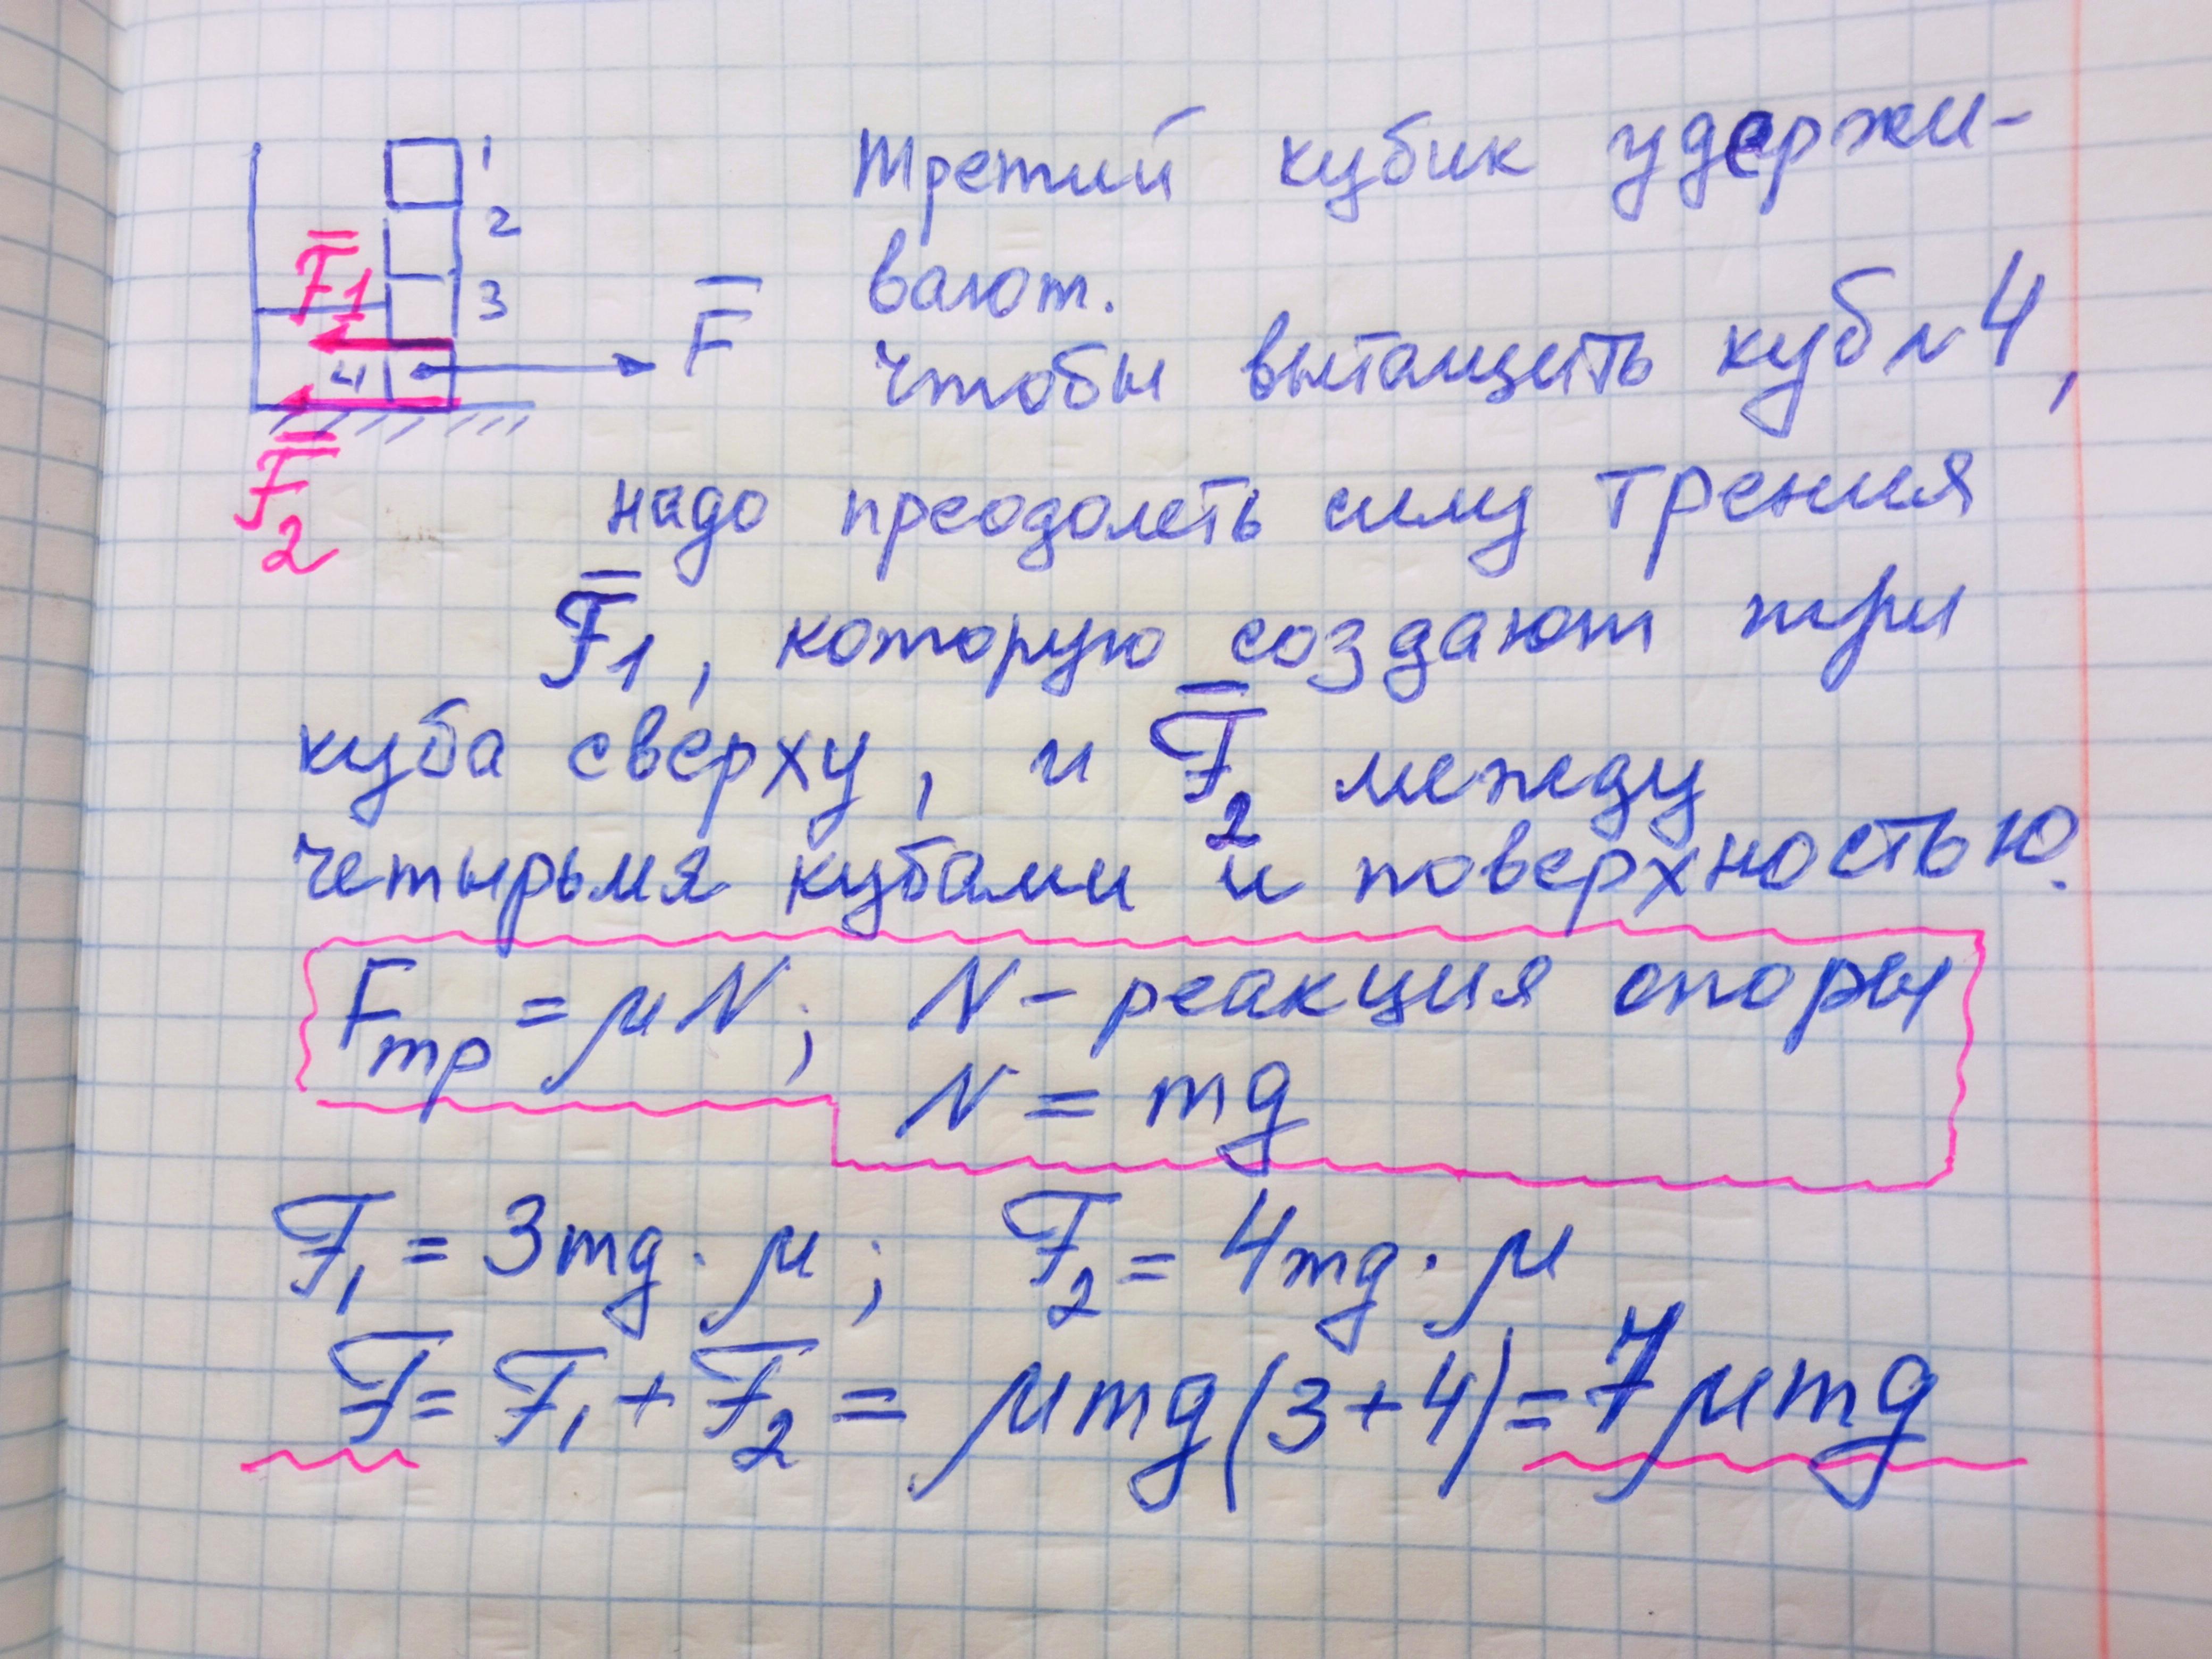 1
третий кубик удержи-
2
F̅1
3
вают.
F̅
чтобы вытащить куб N4,
4
F̅2
надо преодолеть силу трения
F̅1, которую создают три
куба сверху, и F̅2 между
четырьмя кубами и поверхностью.
Fтр = μN; N - реакция опоры
N = mg
F1 = 3mg · μ; F2 = 4mg · μ
F = F1 + F2 = μmg(3+4) = 7μmg